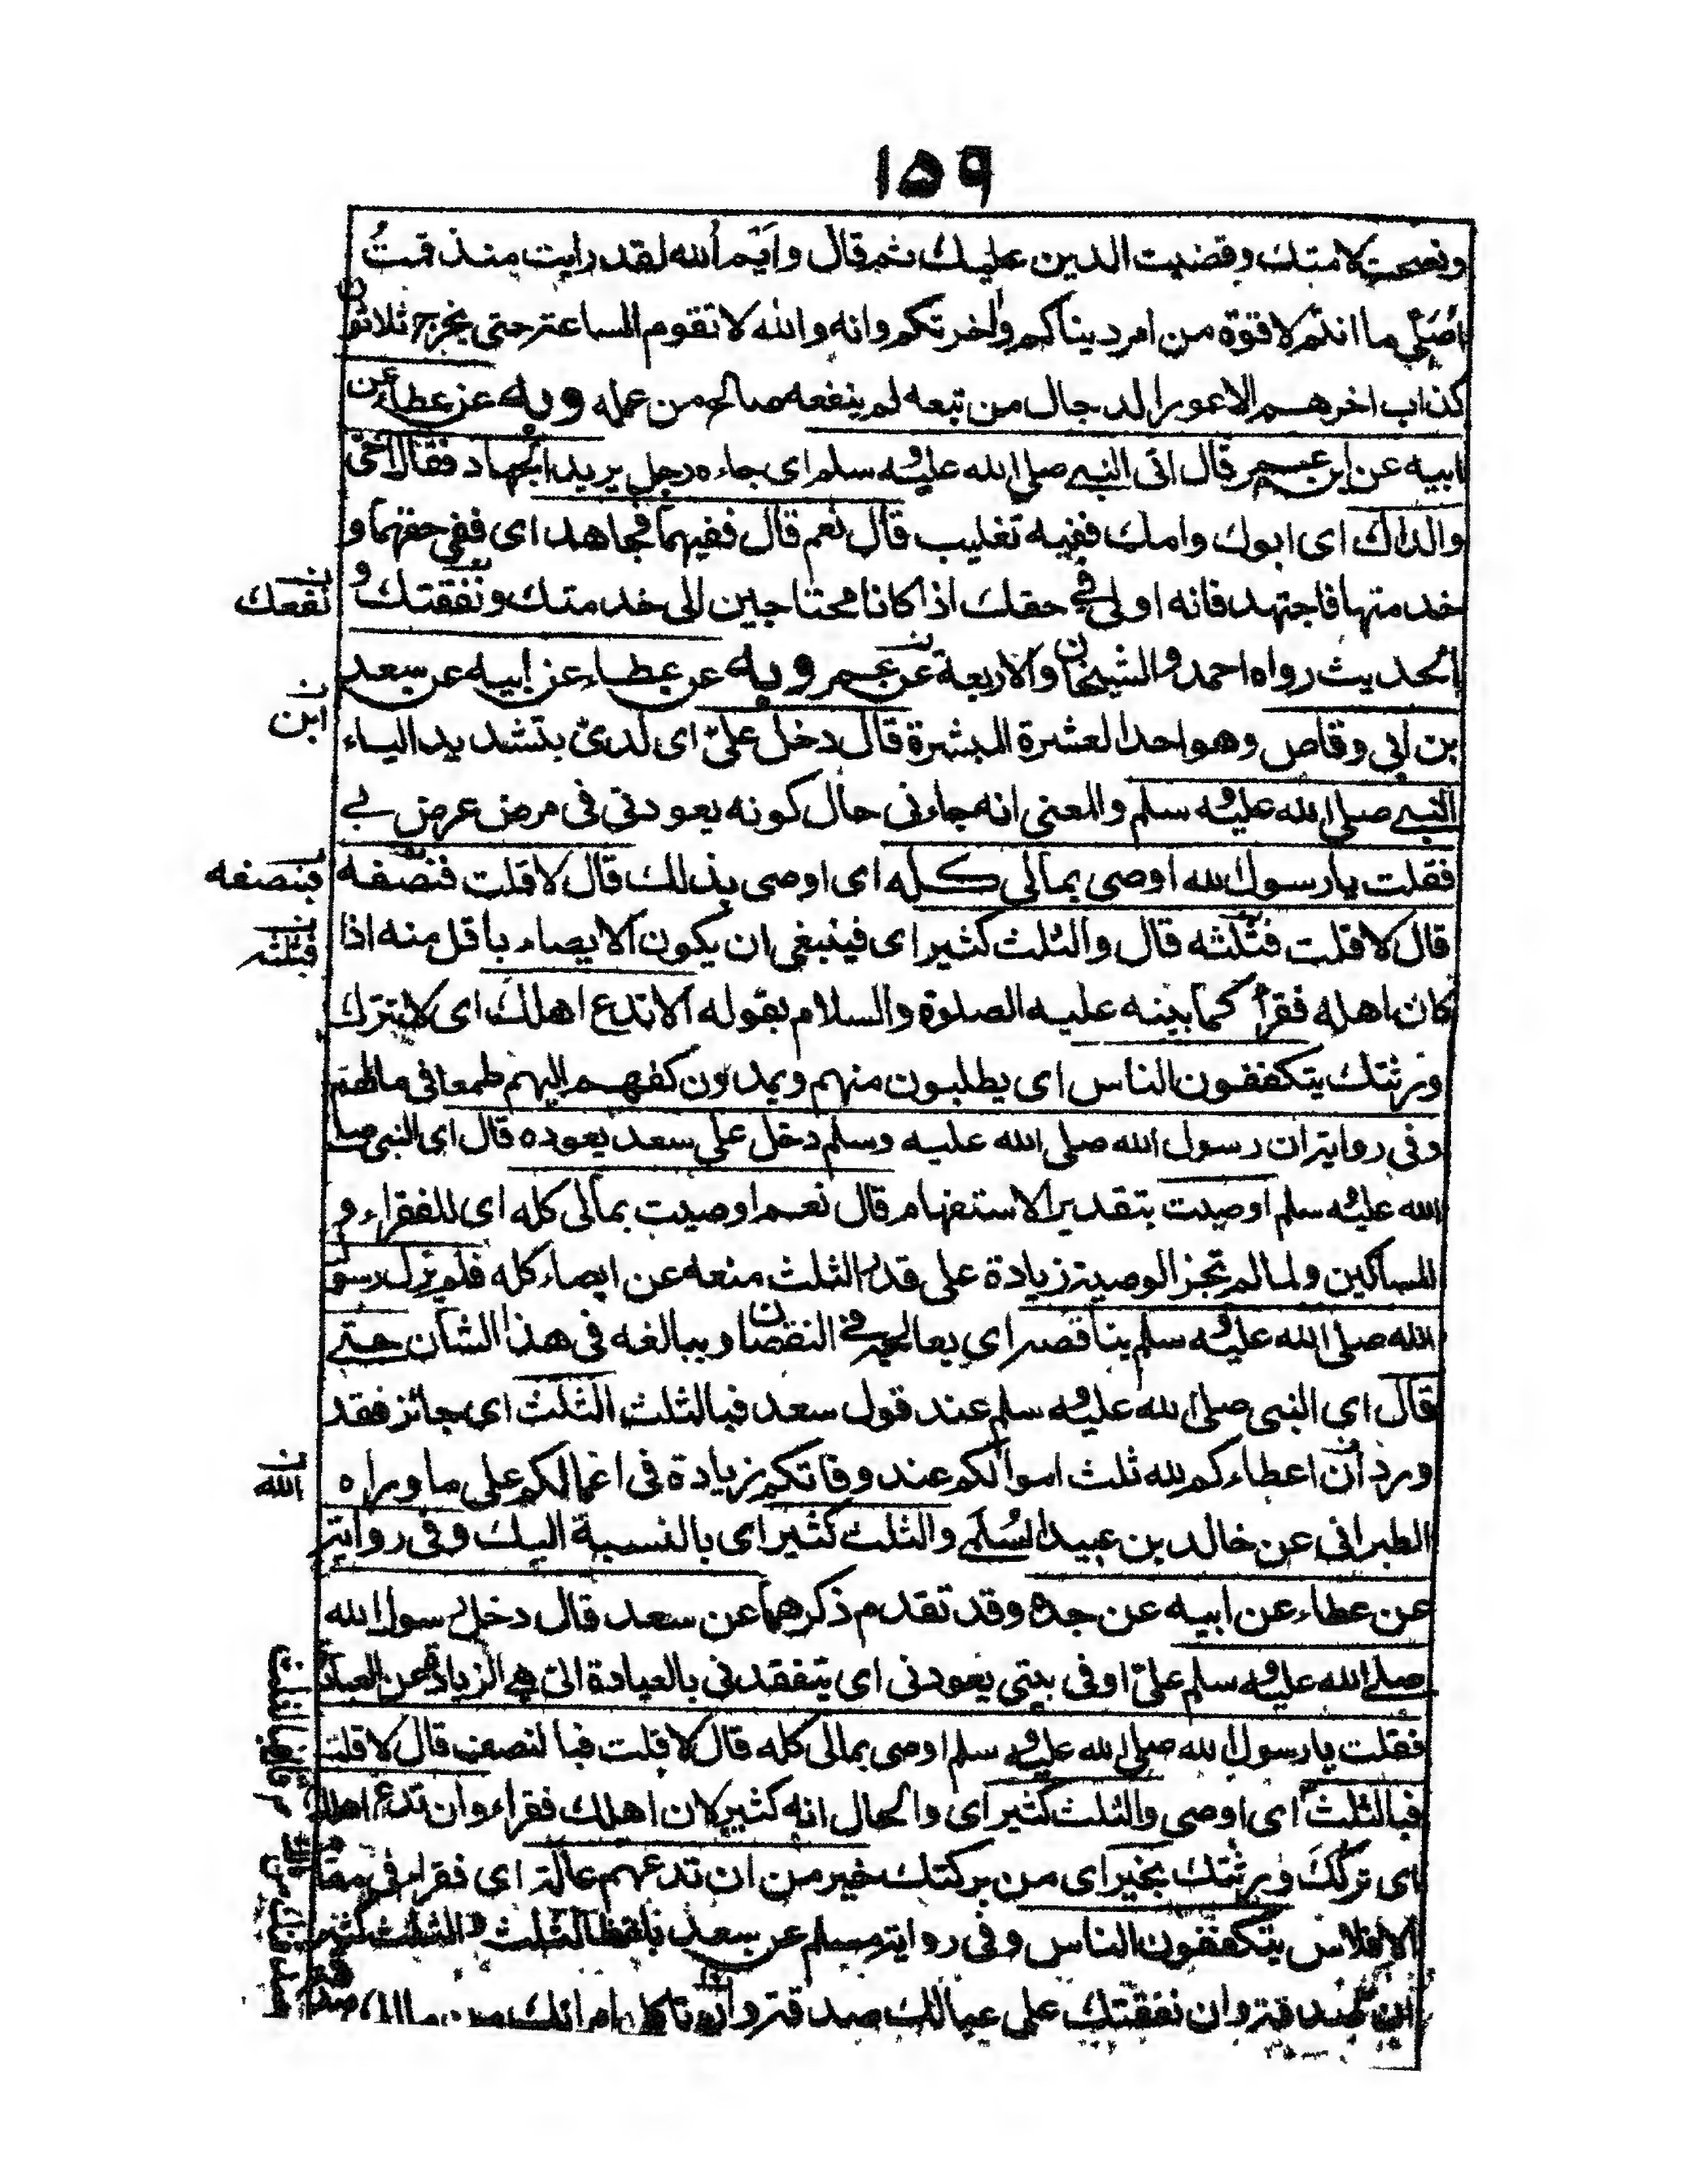 ١٥٩
ونصحت لامتك وقضيت الدين عليك ثم قال وايم الله لقد رايت منذ قمتُ
اُصَلّي ما انتم لاقوة من امر ديناكم واخرتكم وانه والله لا تقوم الساعة حتى يخرج ثلاثون
كذاب اخرهم الاعور الدجال من تبعه لم ينفعه صالح من عمله وبه عن عطاء عن
ابيه عن ابن عمر قال اتى النبي صلى الله عليه وسلم اى جاءه رجل يريد الجهاد فقال احَيّ
والداك اى ابوك وامك ففيه تغليب قال نعم قال ففيهما فجاهد اى ففى حقهما و
خدمتهما فاجتهد فانه اولى في حقك اذا كانا محتاجين الى خدمتك ونفقتك و
نفعك
الحديث رواه احمد والشيخان والاربعة عن عمر وبه عن عطاء عن ابيه عن سعد
ابن
بن ابى وقاص وهو احد العشرة المبشرة قال دخل علىّ اى لدىّ بتشديد الياء
النبي صلى الله عليه وسلم والمعنى انه جاءنى حال كونه يعودنى فى مرض عرض بى
فقلت يا رسول الله اوصى بمالى كله اى اوصى بذلك قال لا قلت فنصفه
فبنصفه
قال لا قلت فثلثه قال والثلث كثير اى فينبغى ان يكون الايصاء باقل منه اذا
فبثلثه
كان اهله فقراء كما بينه عليه الصلوة والسلام بقوله الا تدع اهلك اى لا تترك
ورثتك يتكففون الناس اى يطلبون منهم ويمدون كفهم اليهم طمعا فى مالهم
وفى رواية ان رسول الله صلى الله عليه وسلم دخل على سعد يعوده قال اى النبى صلى
الله عليه وسلم اوصيت بتقدير الاستفهام قال نعم اوصيت بمالى كله اى للفقراء و
المساكين ولما لم تجز الوصية زيادة على قدر الثلث منعه عن ايصاء كله فلم يزل رسول
الله صلى الله عليه وسلم يناقصه اى يعالجه في النقصان ويبالغه فى هذا الشان حتى
قال اى النبى صلى الله عليه وسلم عند قول سعد فبالثلث الثلث اى جائز فقد
ورد ان اعطاءكم لله ثلث اموالكم عند وفاتكم زيادة فى اعمالكم على ما رواه
الله
الطبرانى عن خالد بن عبيد السُلَمي والثلث كثير اى بالنسبة اليك وفى رواية
عن عطاء عن ابيه عن جده وقد تقدم ذكرهما عن سعد قال دخل رسول الله
صلى الله عليه وسلم علىّ او فى بيتى يعودنى اى يتفقدنى بالعيادة التى هى الزيادة عن العبادة
فقلت يا رسول الله صلى الله عليه وسلم اوصى بمالى كله قال لا قلت فبالنصف قال لا قلت
فبالثلث اى اوصى والثلث كثير اى والحال انه كثير لان اهلك فقراء وان تدع اهلك
اى تركك ورثتك بخير اى من بركتك خير من ان تدعهم عالة اى فقراء فى مقام
الافلاس يتكففون الناس وفى رواية مسلم عن سعد بلفظ الثلث والثلث كثير
ان صدقة وان نفقتك على عيالك صدقة وان تاكل امراتك من مالك صدقة